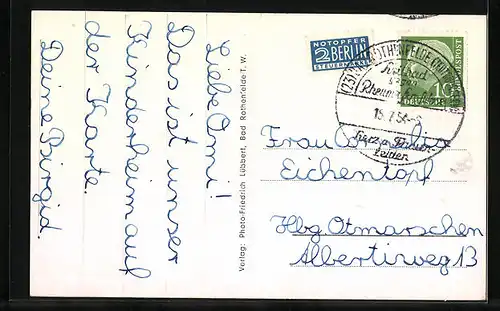 Liebe Omi!
Das ist unser
Kinderheim auf
der Karte.
Deine Birgid.
Verlag: Photo-Friedrich Lübbert, Bad Rothenfelde T. W.
NOTOPFER
2 BERLIN
STEUERMARKE
ROTHENFELDE
15.7.54
Herz u.
Leiden
10
Frau
Eichentopf
Hbg. Otmarschen
Albertiweg 13